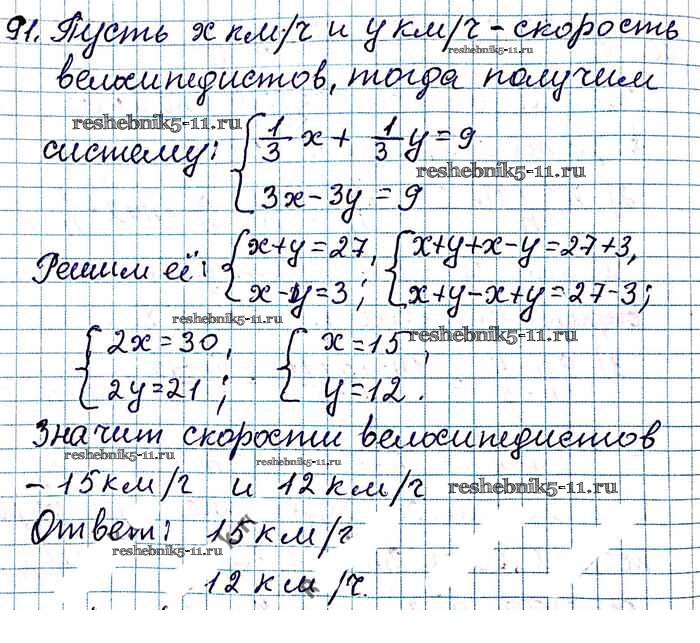 91. Пусть x км/ч и y км/ч – скорость
reshebnik5-11.ru
велосипедистов, тогда получим
reshebnik5-11.ru
систему: { 1/3 x + 1/3 y = 9
reshebnik5-11.ru
3x - 3y = 9
Решим её: { x+y=27, { x+y+x-y=27+3,
x-y=3; x+y-x+y=27-3;
reshebnik5-11.ru
reshebnik5-11.ru
{ 2x=30, { x=15,
2y=21; y=12.
Значит скорости велосипедистов
reshebnik5-11.ru
reshebnik5-11.ru
– 15км/ч и 12 км/ч
reshebnik5-11.ru
Ответ: 15 км/ч
reshebnik5-11.ru
12 км/ч.